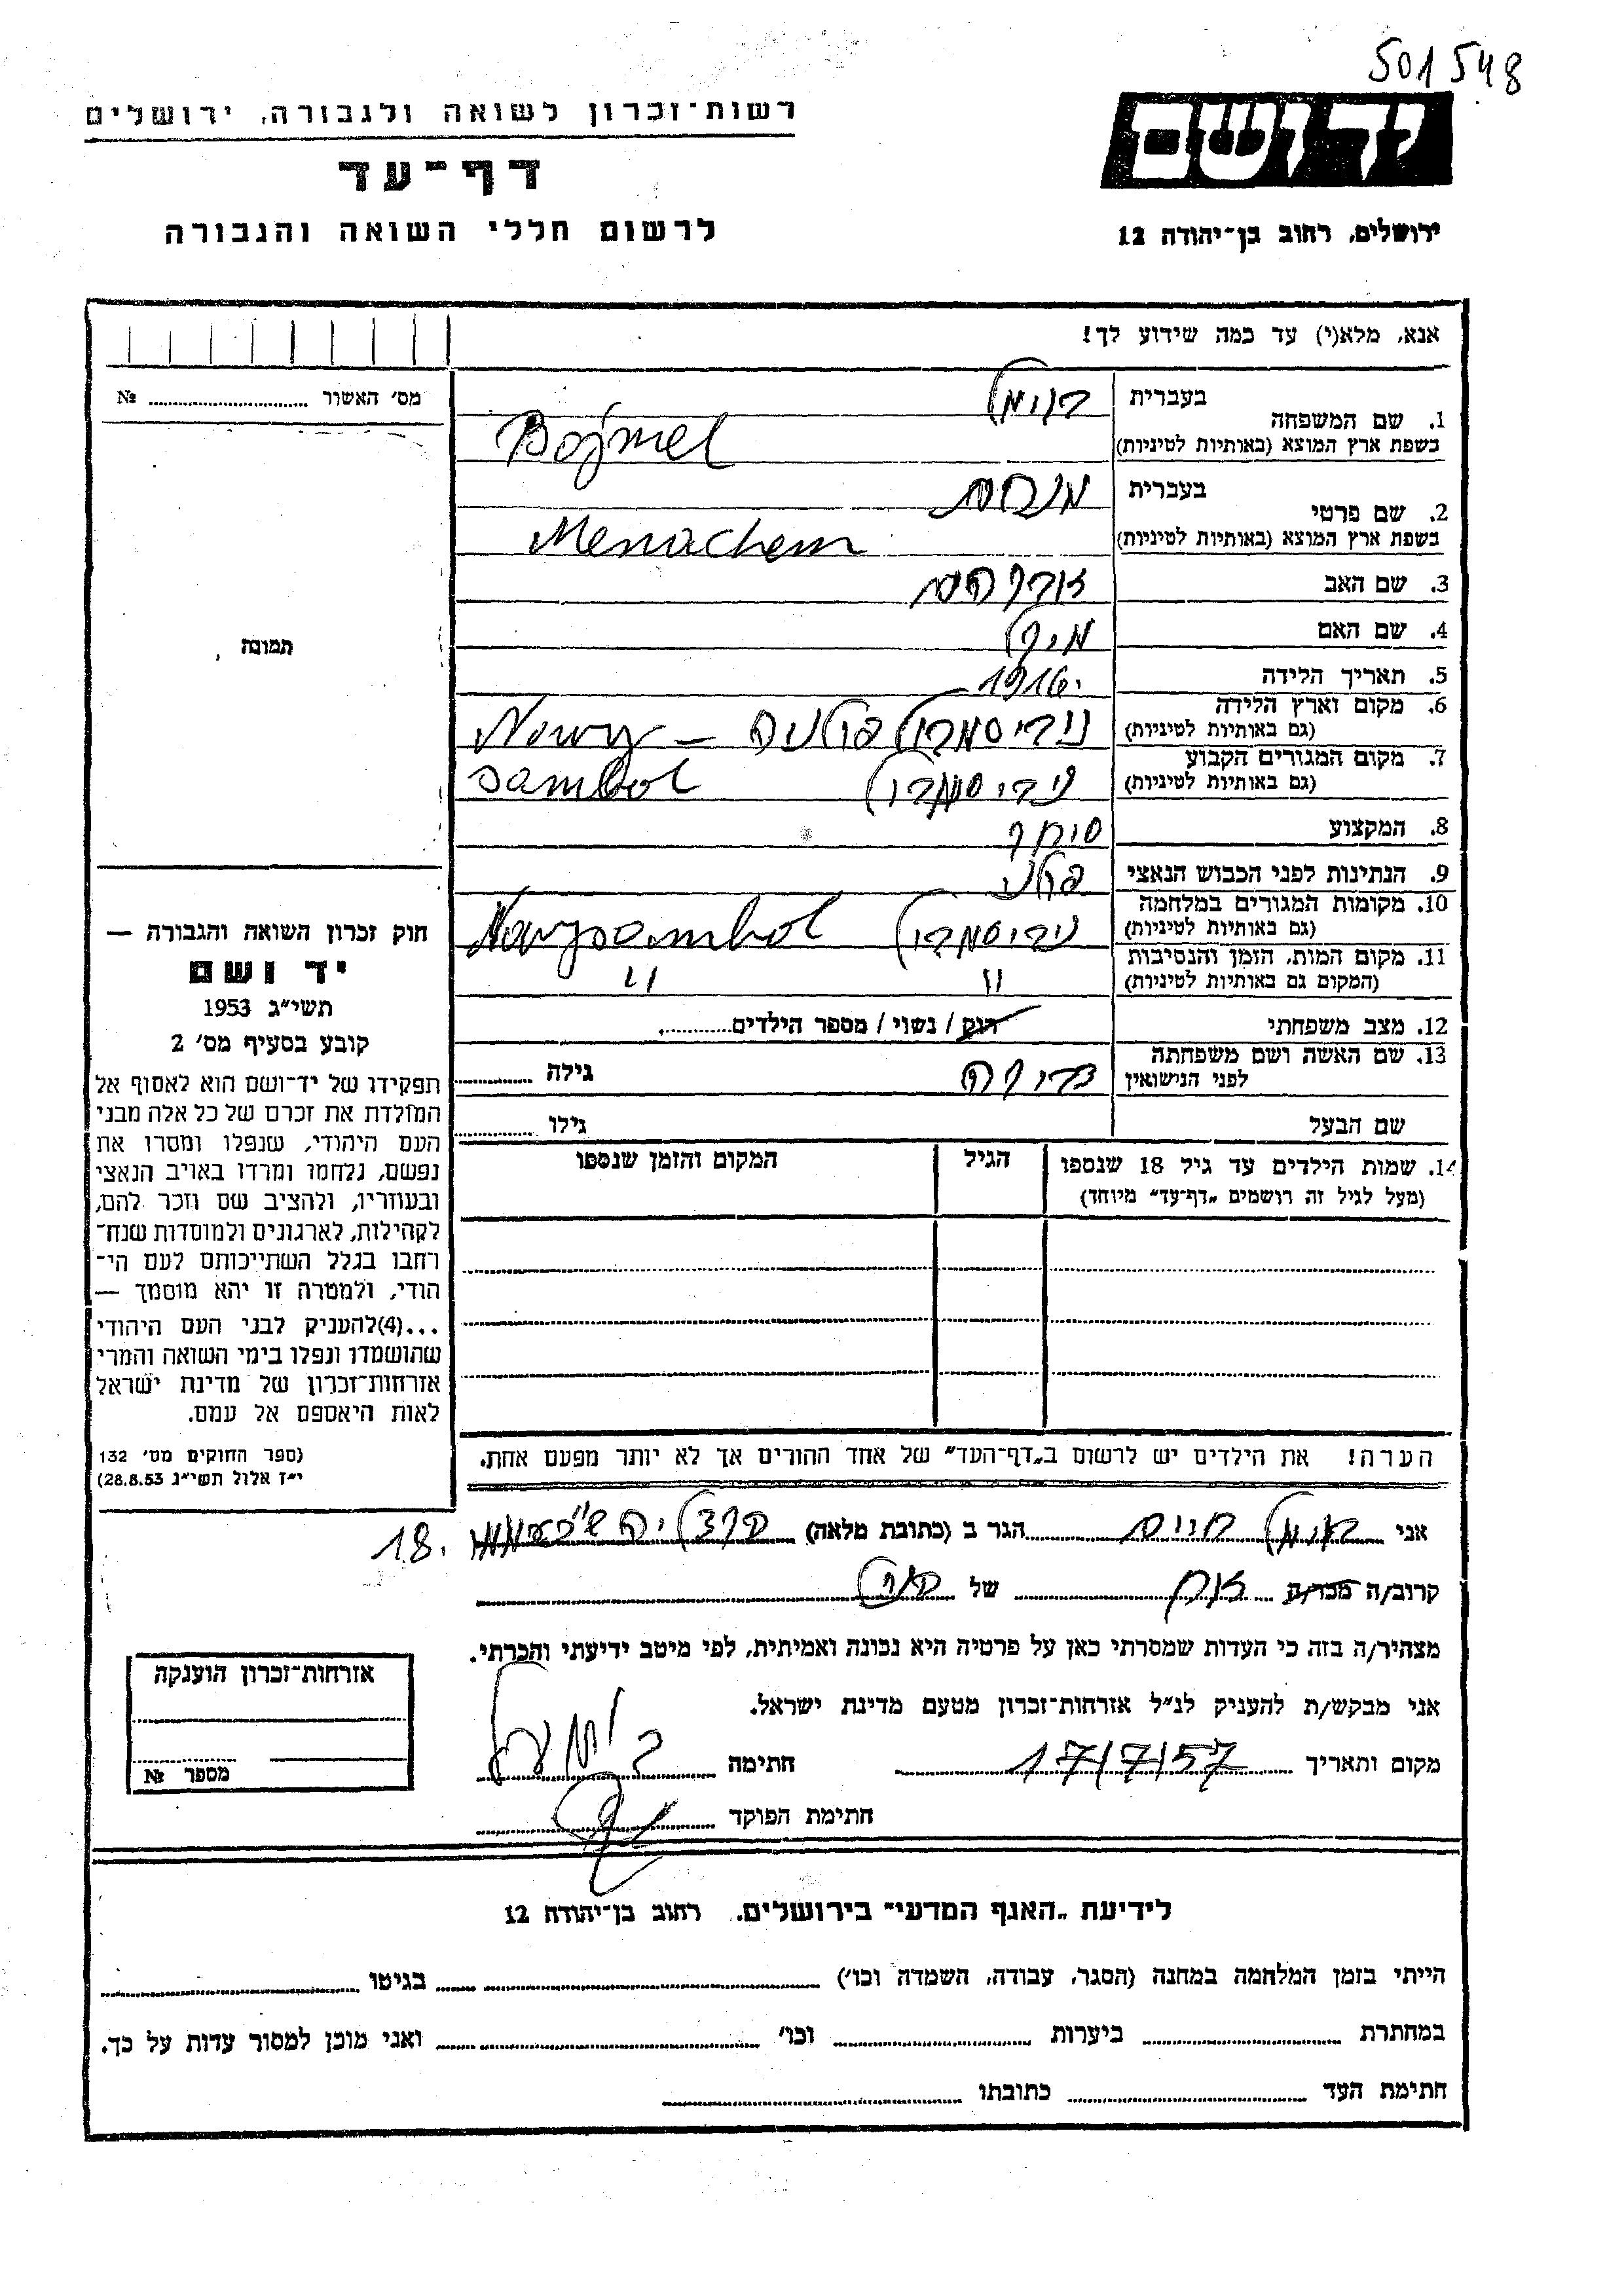 501548
רשות־זכרון לשואה ולגבורה, ירושלים
דף־עד
לרשום חללי השואה והגבורה
יד ושם
ירושלים, רחוב בן־יהודה 12
אנא, מלא(י) עד כמה שידוע לך!
מס׳ האשור № 
תמונה
1. שם המשפחה
בעברית בוימל
בשפת ארץ המוצא (באותיות לטיניות) Bojmel
2. שם פרטי
בעברית מנחם
בשפת ארץ המוצא (באותיות לטיניות) Menachem
3. שם האב אברהם
4. שם האם
5. תאריך הלידה 1916
6. מקום וארץ הלידה
(גם באותיות לטיניות) פולניה – Nowy
7. מקום המגורים הקבוע
(גם באותיות לטיניות) sambol
8. המקצוע סוחר
9. הנתינות לפני הכבוש הנאצי פולני
10. מקומות המגורים במלחמה
(גם באותיות לטיניות) Nowysambol
11. מקום המות, הזמן והנסיבות
(המקום גם באותיות לטיניות) " "
12. מצב משפחתי רוק / נשוי / מספר הילדים
13. שם האשה ושם משפחתה
לפני הנישואין גילה
שם הבעל גילו
14. שמות הילדים עד גיל 18 שנספו הגיל המקום והזמן שנספו
(מעל לגיל זה רושמים „דף־עד" מיוחד)
הערה! את הילדים יש לרשום ב„דף־העד" של אחד ההורים אך לא יותר מפעם אחת.
חוק זכרון השואה והגבורה —
יד ושם
תשי״ג 1953
קובע בסעיף מס׳ 2
תפקידו של יד־ושם הוא לאסוף אל
המולדת את זכרם של כל אלה מבני
העם היהודי, שנפלו ומסרו את
נפשם, נלחמו ומרדו באויב הנאצי
ובעוזריו, ולהציב שם וזכר להם,
לקהילות, לארגונים ולמוסדות שנח־
רחבו בגלל השתייכותם לעם הי־
הודי, ולמטרה זו יהא מוסמך —
...(4)להעניק לבני העם היהודי
שהושמדו ונפלו בימי השואה והמרי
אזרחות־זכרון של מדינת ישראל
לאות היאספם אל עמם.
(ספר החוקים מס׳ 132
י״ז אלול תשי״ג 28.8.53)
אני בוימל חיים הגר ב (כתובת מלאה) הרצליה 18.
קרוב/ה מכר/ה אח של
מצהיר/ה בזה כי העדות שמסרתי כאן על פרטיה היא נכונה ואמיתית, לפי מיטב ידיעתי והכרתי.
אני מבקש/ת להעניק לנ״ל אזרחות־זכרון מטעם מדינת ישראל.
מקום ותאריך 17/7/57 חתימה
חתימת הפוקד
אזרחות־זכרון הוענקה
מספר №
לידיעת „האגף המדעי" בירושלים. רחוב בן־יהודה 12
הייתי בזמן המלחמה במחנה (הסגר, עבודה, השמדה וכו׳) בגיטו
במחתרת ביערות וכו׳ ואני מוכן למסור עדות על כך.
חתימת העד כתובתו